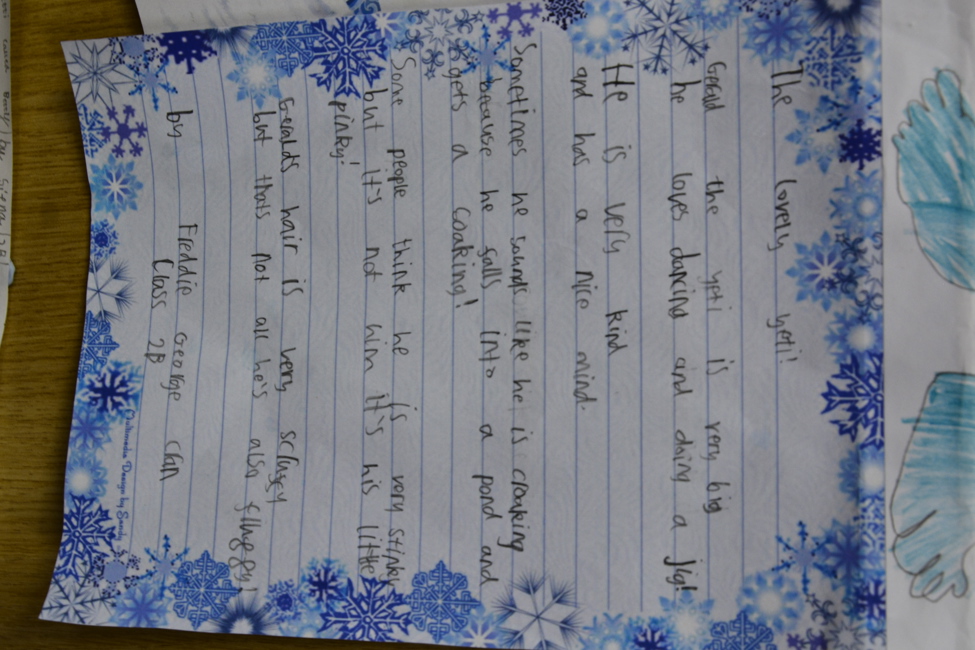 The lovely yeti!
Gerald the yeti is very big
he loves dancing and doing a jig!
He is very kind
and has a nice mind.
Sometimes he sounds like he is croaking
because he falls into a pond and
gets a coaking!
Some people think he is very stinky
but it's not him it's his little
pinky!
Geralds hair is very
but thats not all he's also fluggy!
by Freddie George Cian
Class 2B
Multimedia Design by Sandy
by Siena 2B